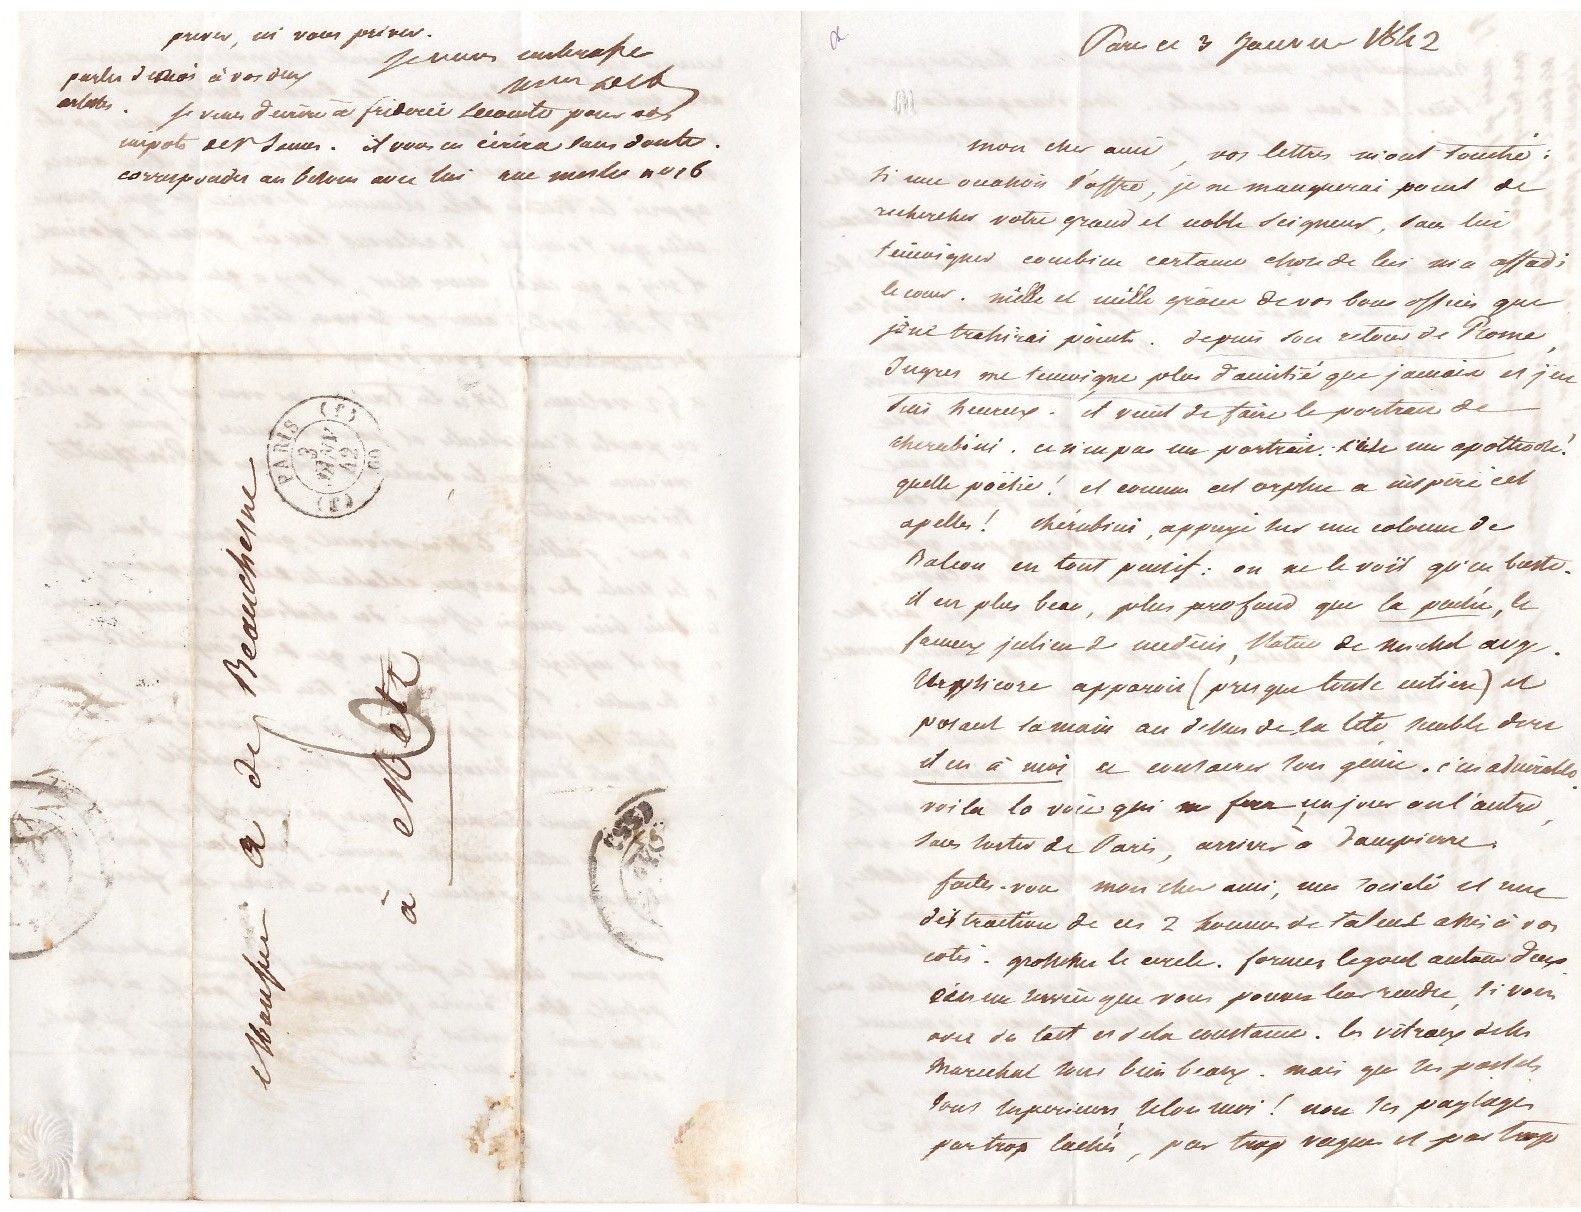 Paris ce 3 Janvier 1842
mon cher ami, vos lettres m'ont touché :
si une occasion s'offre, je ne manquerai point de
rechercher votre grand et noble seigneur, sans lui
témoigner combien certaine chose de lui m'a affadi
le cœur. mille et mille grâces de vos bons offices que
je ne trahirai point. depuis son retour de Rome,
Ingres me temoigne plus d'amitié que jamais et j'en
suis heureux. il vient de faire le portrait de
cherubini. ce n'est pas un portrait. c'est une apothéose!
quelle poësie! et comme cet orphée a inspiré cet
apelles! chérubini, appuyé sur une colonne de
Balcon est tout pensif : on ne le voit qu'en buste.
il est plus beau, plus profond que la pensée, le
fameux julien de medicis, statue de michel ange.
apparoit (presque toute entiere) et
posant sa main au dessus de sa tête semble dire
il est à moi et consacrer son génie. c'est admirable.
voila la voie qui me fera, un jour ou l'autre,
sans sortir de Paris, arriver à Dampierre.
faites-vous mon cher ami, une société et une
distraction de ces 2 hommes de talent assis à vos
cotés. grossissez le cercle. formez le gout autour d'eux
c'est un service que vous pouvez leur rendre, si vous
avez du tact et de la constance. les vitraux de
Marechal sont bien beaux. mais que ses pastels
sont superieurs, selon moi! non ses paysages
par trop lachés, par trop vagues et par trop
priver, ni vous priver.
je vous embrasse
parlez de moi à vos deux
artistes.
je viens d'ecrire à fréderic Lecomte pour vos
impots de St James. il vous en écrira sans doute.
correspondez au besoin avec lui rue meslee no 16
PARIS
3
JANV
42
(60)
Monsieur A de Beauchesne
à Metz